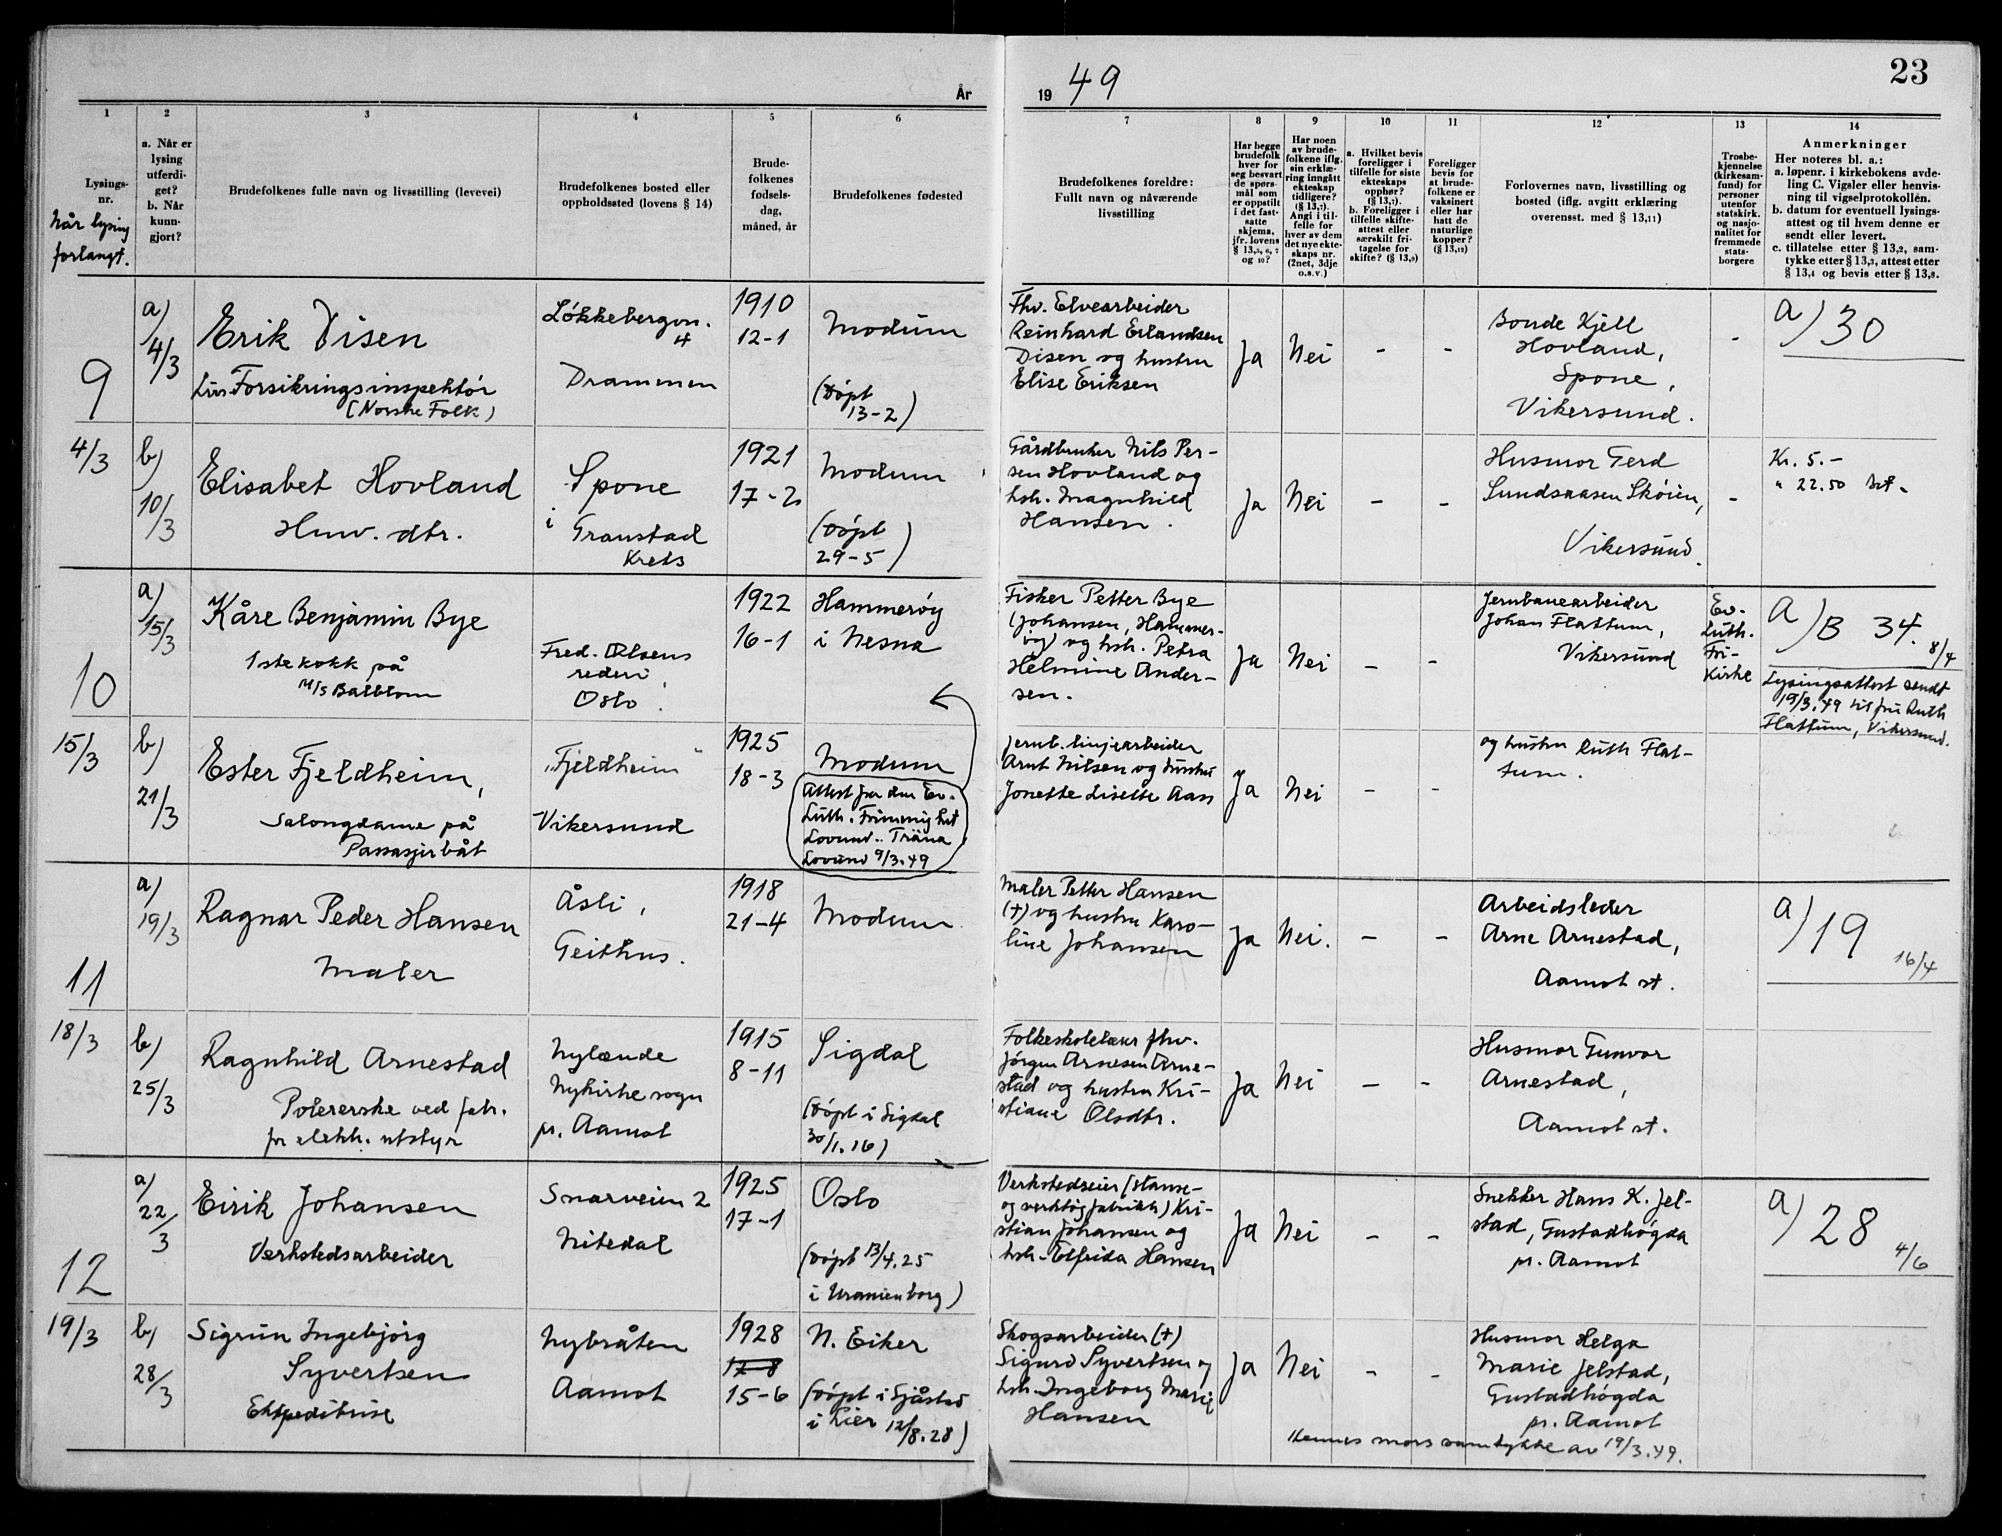 År
19 49
23
1
2
3
4
5
6
7
8
9
10
11
12
13
14
Lysings-
nr.
Når lysing
forlangt.
a. Når er
lysing
utferdi-
get?
b. Når
kunn-
gjort?
Brudefolkenes fulle navn og livsstilling (levevei)
Brudefolkenes bosted eller
oppholdssted (lovens § 14)
Brude-
folkenes
fødsels-
dag,
måned, år
Brudefolkenes fødested
Brudefolkenes foreldre:
Fullt navn og nåværende
livsstilling
Har begge
brudefolk
hver for
seg besvart
de spørs-
mål som
er oppstilt
i det fast-
satte
skjema,
jfr. lovens
§ 13,5, 6, 7
og 10?
Har noen
av brude-
folkene iflg.
sin erklæ-
ring inngått
ekteskap
tidligere?
(§ 13,7).
Angi i til-
felle for
hver av dem
det nye ekte-
skaps nr.
(2net, 3dje
o.s.v.)
a. Hvilket bevis
foreligger i
tilfelle for siste
ekteskaps
opphør?
(§ 13,7).
b. Foreligger i
tilfelle skifte-
attest eller
særskilt fri-
tagelse for
skifte? (§ 13,9)
Foreligger
bevis for
at brude-
folkene er
vaksinert
eller har
hatt de
naturlige
kopper?
(§ 13,12)
Forlovernes navn, livsstilling og
bosted (iflg. avgitt erklæring
overensst. med § 13,11)
Trosbe-
kjennelse
(kirkesam-
fund) for
personer
utenfor
statskirk.
og nasjo-
nalitet for
fremmede
stats-
borgere
Anmerkninger
Her noteres bl. a.:
a. løpenr. i kirkebokens avde-
ling C. Vigsler eller henvis-
ning til vigselprotokollén.
b. datum for eventuell lysings-
attest og til hvem denne er
sendt eller levert.
c. tillatelse etter § 13,2, sam-
tykke etter § 13,3, attest etter
§ 13,4 og bevis etter § 13,8.
9
a)
4/3
Erik Disen
Livs-Forsikringsinspektør
(Norske Folk)
Løkkebergsn.
4
Drammen
1910
12-1
Modum
(Døpt
13-2)
Fhv. Elvearbeider
Reinhard Erlandsen
Disen og hustru
Elise Eriksen
Ja
Nei
-
-
Bonde Kjell
Hovland,
Spone,
Vikersund.
-
a) 30
4/3
b)
10/3
Elisabet Hovland
Husv. dtr.
Spone
i Granstad
krets
1921
17-2
Modum
(Døpt
29-5)
Gårdbruker Nils Per-
sen Hovland og
hsh. Magnhild
Hansen.
Ja
Nei
-
-
Husmor Gerd
Sundsaasen Skøien,
Vikersund.
-
Kr. 5.-
" 22.50
10
a)
15/3
Kåre Benjamin Bye
1ste kokk på
M/S Balblom
Fred. Olsens
rederi,
Oslo.
1922
16-1
Hammerøy
i Nesna
Fisker Petter Bye
(Johansen, Hammer-
øy) og hsh. Petra
Helmine Ander-
sen.
Ja
Nei
-
-
Jernbanearbeider
Johan Flattum,
Vikersund
Ev.
Luth.
Fri-
kirke
a) B 34.
8/4
Lysingsattest sendt
19/3.49 til fru Ruth
Flattum, Vikersund.
15/3
b)
21/3
Ester Fjeldheim,
Salongdame på
Passasjerbåt
"Fjeldheim"
Vikersund
1925
18-3
Modum
Attest fra den Ev.
Luth. Frimenighet
Lovund - Träna
Lovund 9/3.49
Jernb. linjearbeider
Arnt Nilsen og hustru
Jonette Liselte Aas
Ja
Nei
-
-
og hustru Ruth Flat-
tum.
11
a)
19/3
Ragnar Peder Hansen
Maler
Åsli,
Geithus.
1918
21-4
Modum
Maler Petter Hansen
(+) og hustru Karo-
line Johansen
Ja
Nei.
-
-
Arbeidsleder
Arne Arnestad,
Aamot st.
a) 19
16/4
18/3
b)
25/3
Ragnhild Arnestad
Polererske ved fabr.
for elekk. utstyr
Nylænde
Nykirke sogn
pr. Aamot
1915
8-11
Sigdal
(Døpt i Sigdal
30/1.16)
Folkeskolelærer fhv.
Jørgen Arnesen Arne-
stad og hustru Kri-
stiane Olsdtr.
Ja
Nei
-
-
Husmor Gunvor
Arnestad,
Aamot st.
12
a)
22/3
Eirik Johansen
Verkstedsarbeider
Snarveien 2
Nitedal
1925
17-1
Oslo
(Døpt 13/4.25
i Uranienborg)
Verkstedseier (stanse-
og verktøyfabrikk) Kri-
stian Johansen og
hsh. Elfrida Hansen
Ja
Nei
-
-
Snekker Hans K. Jel-
stad, Gustadhøgda
pr. Aamot
a) 28
4/6
19/3
b)
28/3
Sigrun Ingebjørg
Syvertsen
Ekspeditrise
Nybråten
Aamot
1928
17-8
15-6
N. Eiker
(Døpt i Sjåstad
i Lier 12/8.28)
Skogsarbeider (+)
Sigurd Syvertsen og
hsh. Ingeborg Marie
Hansen
Ja
Nei
-
-
Husmor Helga
Marie Jelstad,
Gustadhøgda
pr. Aamot
Hennes mors samtykke av 19/3.49.